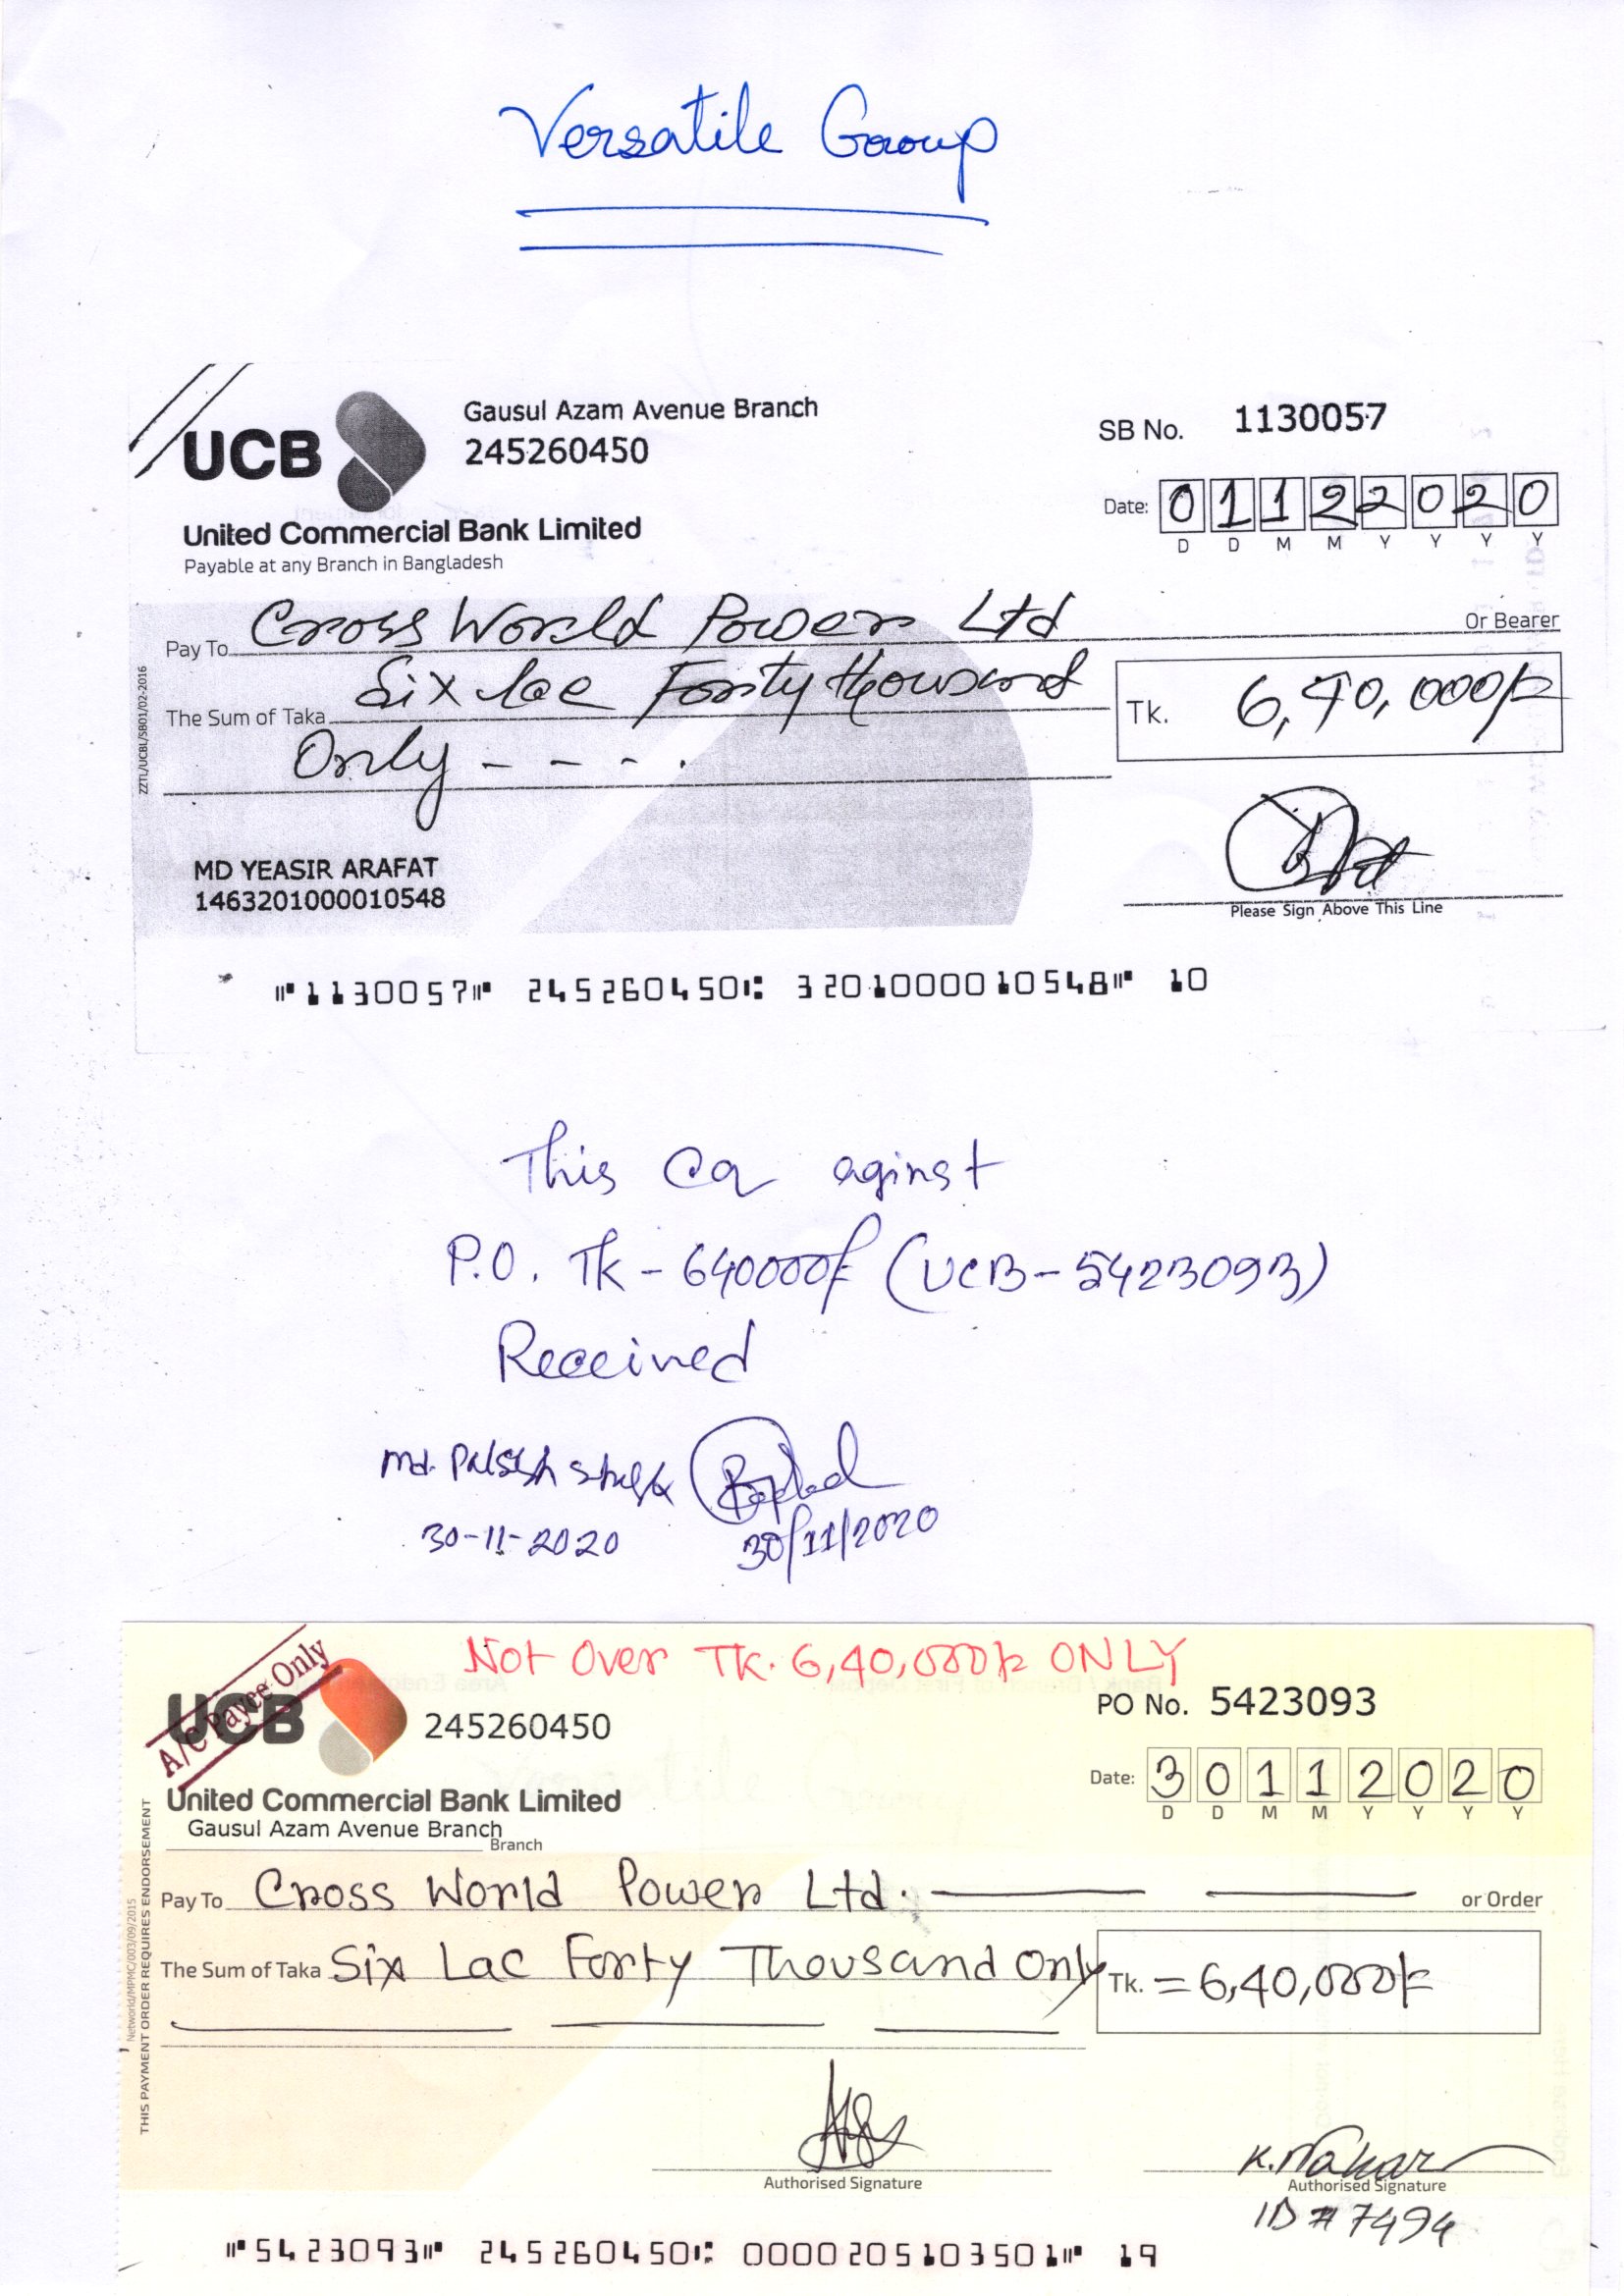 Versatile Group
UCB
Gausul Azam Avenue Branch
245260450
SB No. 1130057
United Commercial Bank Limited
Payable at any Branch in Bangladesh
Date: 01122020
D D M M Y Y Y Y
Pay To Cross World Power Ltd Or Bearer
The Sum of Taka Six lac Forty thousand
Only - - - .
Tk. 6,40,000/-
ZZTL/UCBL/SB01/02-2016
MD YEASIR ARAFAT
1463201000010548
Please Sign Above This Line
⑈1130057⑈ 245260450⑆ 3201000010548⑈ 10
This CQ aginst
P.O. Tk - 640000/- (UCB-5423093)
Received
Md.
30-11-2020 30/11/2020
Not Over TK. 6,40,000/- ONLY
A/C Payee Only
UCB
245260450
PO No. 5423093
United Commercial Bank Limited
Gausul Azam Avenue Branch
Branch
Date: 30112020
D D M M Y Y Y Y
Pay To Cross World Power Ltd. or Order
The Sum of Taka Six Lac Forty Thousand Only
Tk. =6,40,000/-
Networld/MPMC/003/09/2015
THIS PAYMENT ORDER REQUIRES ENDORSEMENT
Authorised Signature
K. Nahar
Authorised Signature
ID # 7494
⑈5423093⑈ 245260450⑆ 0000205103501⑈ 19